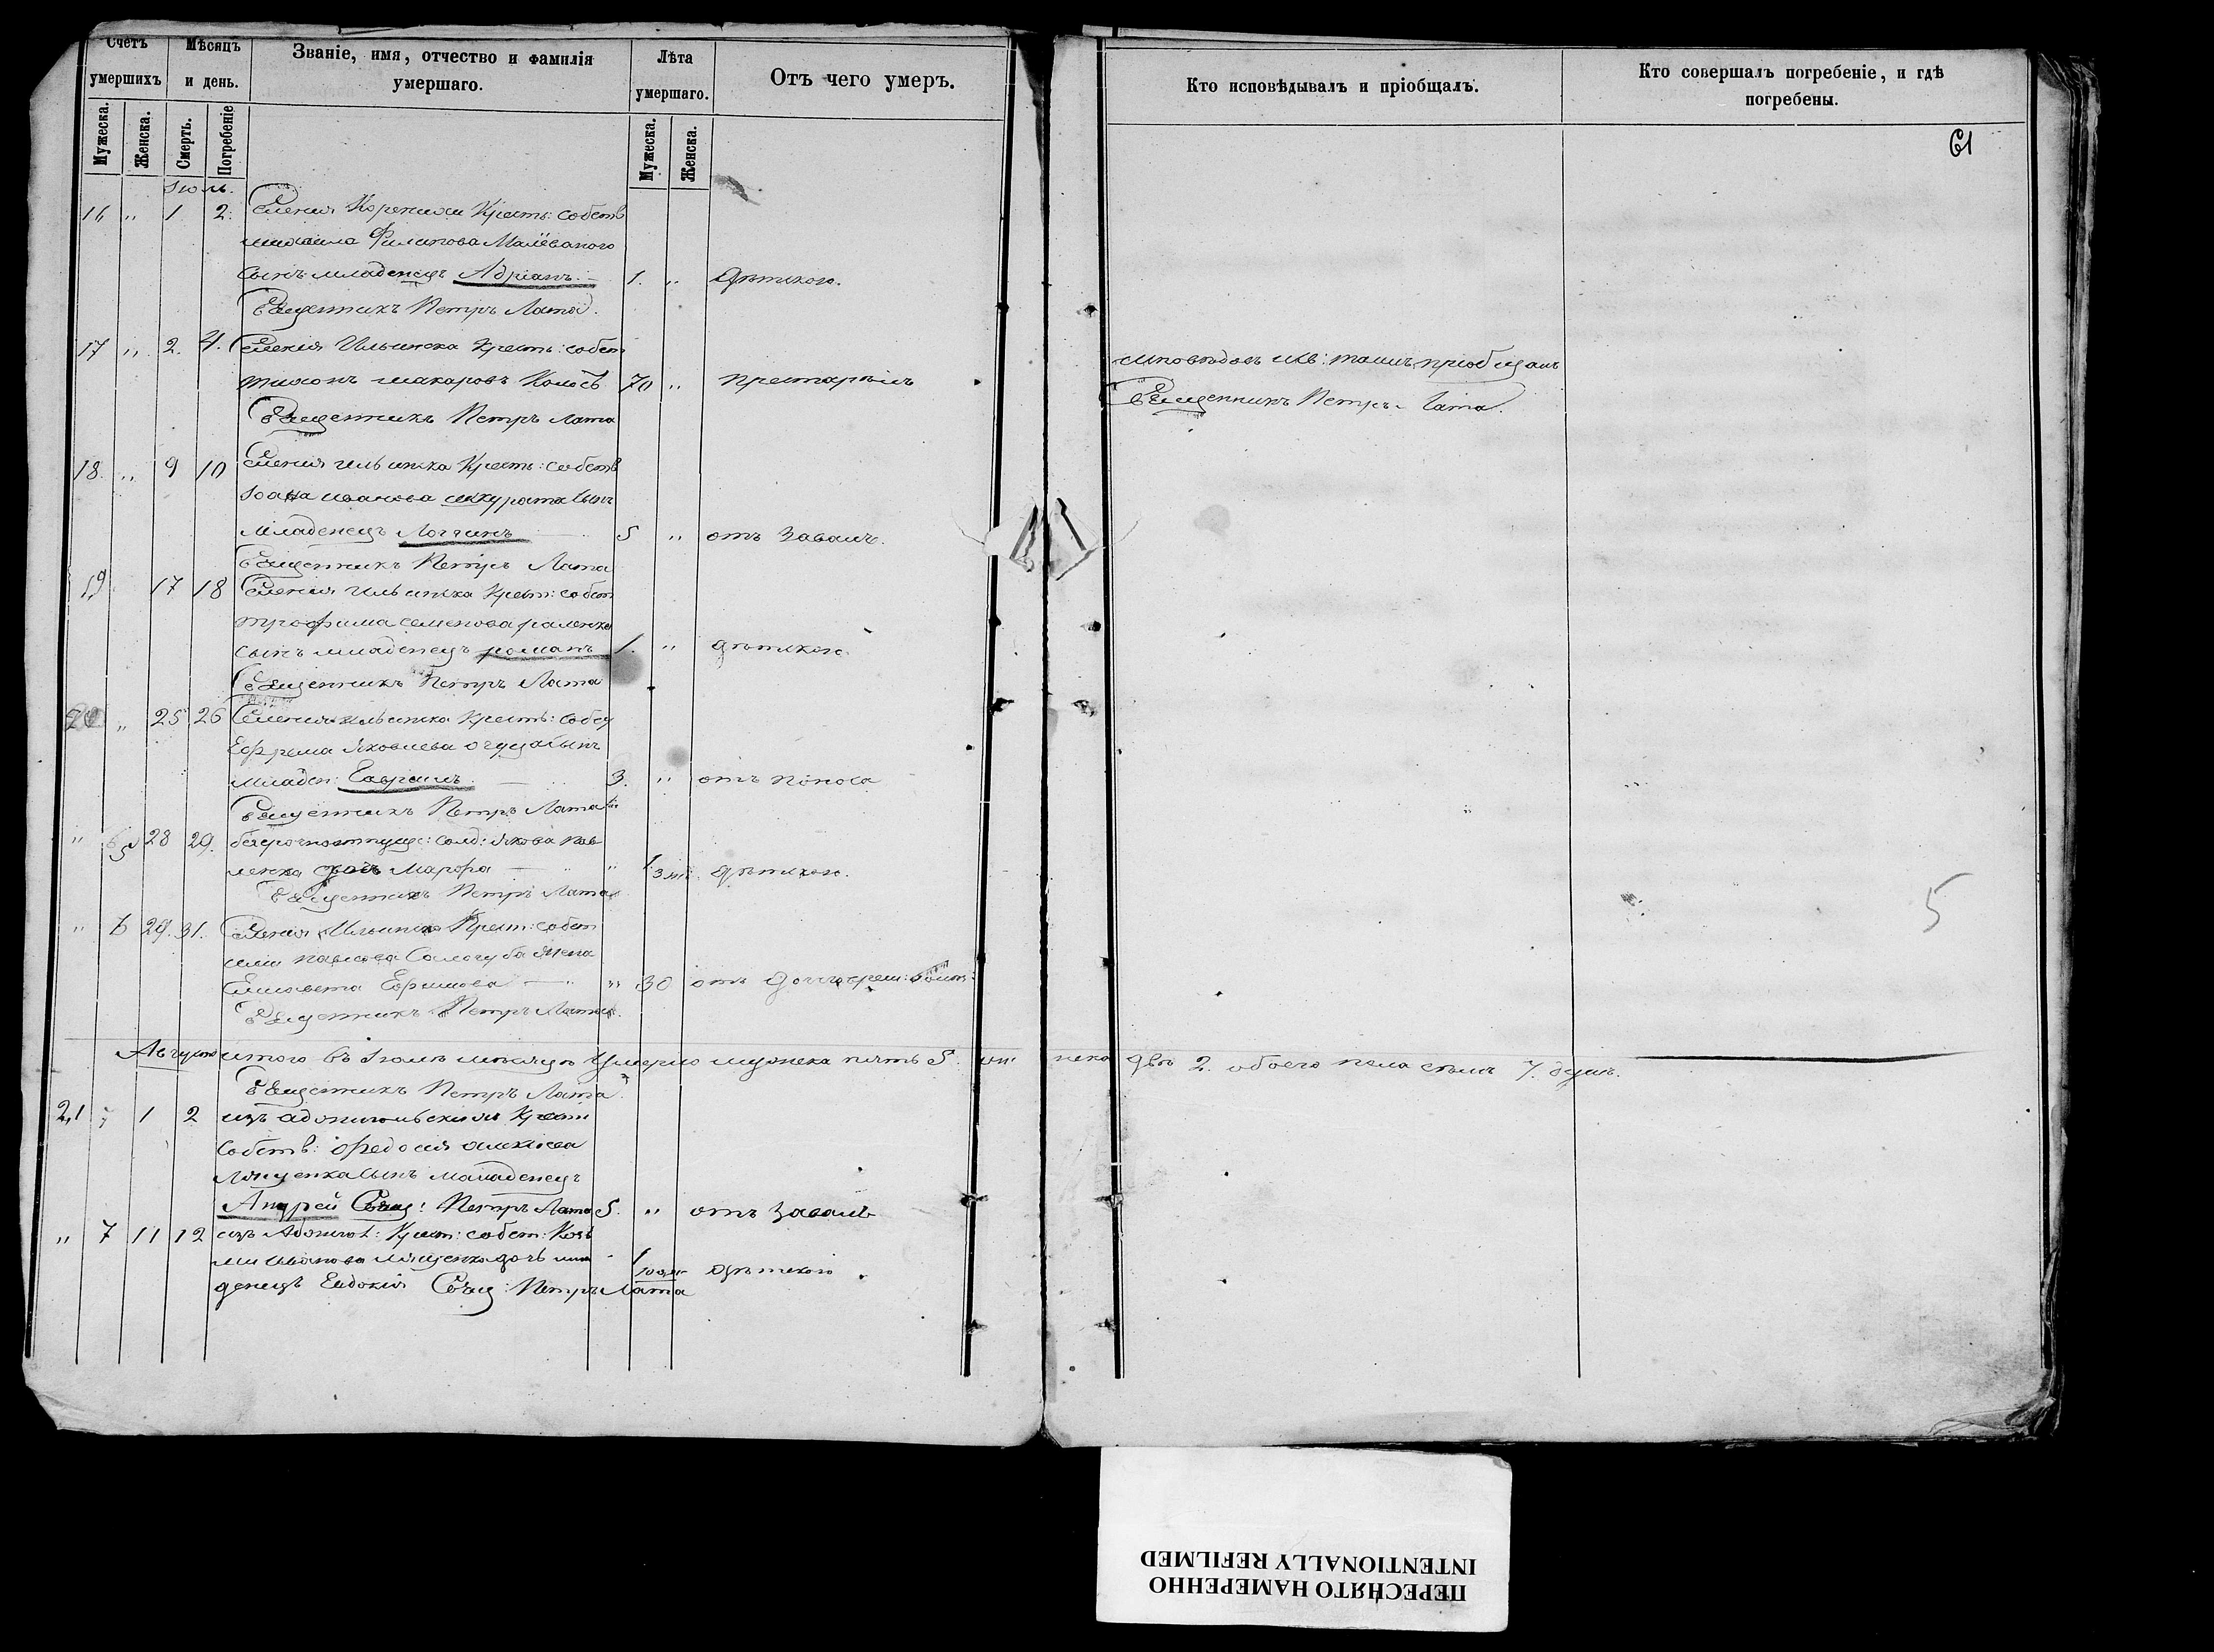 Счетъ умершихъ
Мѣсяцъ и день.
Званіе, имя, отчество и фамилія умершаго.
Лѣта умершаго.
Отъ чего умеръ.
Кто исповѣдывалъ и пріобщалъ.
Кто совершалъ погребеніе, и гдѣ погребены.
Мужеска.
Женска.
Смерть.
Погребеніе
Мужеска.
Женска.
61
Іюль.
16 " 1 2. Селенія Крест: собств
Михаила Филипова Малёваного
сынъ младенецъ Адріанъ. 1. " Дѣтскою.
Священникъ Петръ Лата.
17 " 2. 4. Селенія Ильинска Крест: собст
Тихонъ Макаровъ 70 "
Священникъ Петръ Лата
Исповѣдовъ и св: таинъ пріобщалъ
Священникъ Петръ Лата.
18. " 9 10 Селенія Ильинска Крест: собств
Іоана Иванова Шкурата сынъ
младенецъ Логгинъ 5 " отъ завалъ.
Священникъ Петръ Лата
19 17 18 Селенія Ильинска Крест: собст
Трофима Семенова
сынъ младенецъ Романъ 1. " дѣтскою
Священникъ Петръ Лата
20 " 25 26 Селенія Ильинска Крест: собст
Ефрема Яковлева сынъ
младен: Гавріилъ 3. " отъ поноса
Священникъ Петръ Лата
" 5 28 29. безсрочноотпущ: солд: Якова Пав
ленка дочь Марфа " 1 дѣтскою.
Священникъ Петръ Лата
" 6 29. 31. Селенія Ильинска Крест: собст
Павлова Сологуба жена
Елисавета Ефимова " 30 отъ
Священникъ Петръ Лата.
Августъ
итого въ Іюлѣ мѣсяцѣ умерло мужеска пять 5. женска двѣ 2. обоего пола семь 7. душъ.
Священникъ Петръ Лата.
5
21 " 1 2 изъ Крест
собств: Федосія Алексіева
Лященка сынъ младенецъ
Андрей Свящ: Петръ Лата 5. " отъ завалъ
" 7 11 12 изъ Крест: собст: Козь
мы Иванова Лященка дочь мла 1
денецъ Евдокія Свящ: Петръ Лата дѣтскою.
ПЕРЕСНЯТО НАМЕРЕННО
INTENTIONALLY REFILMED